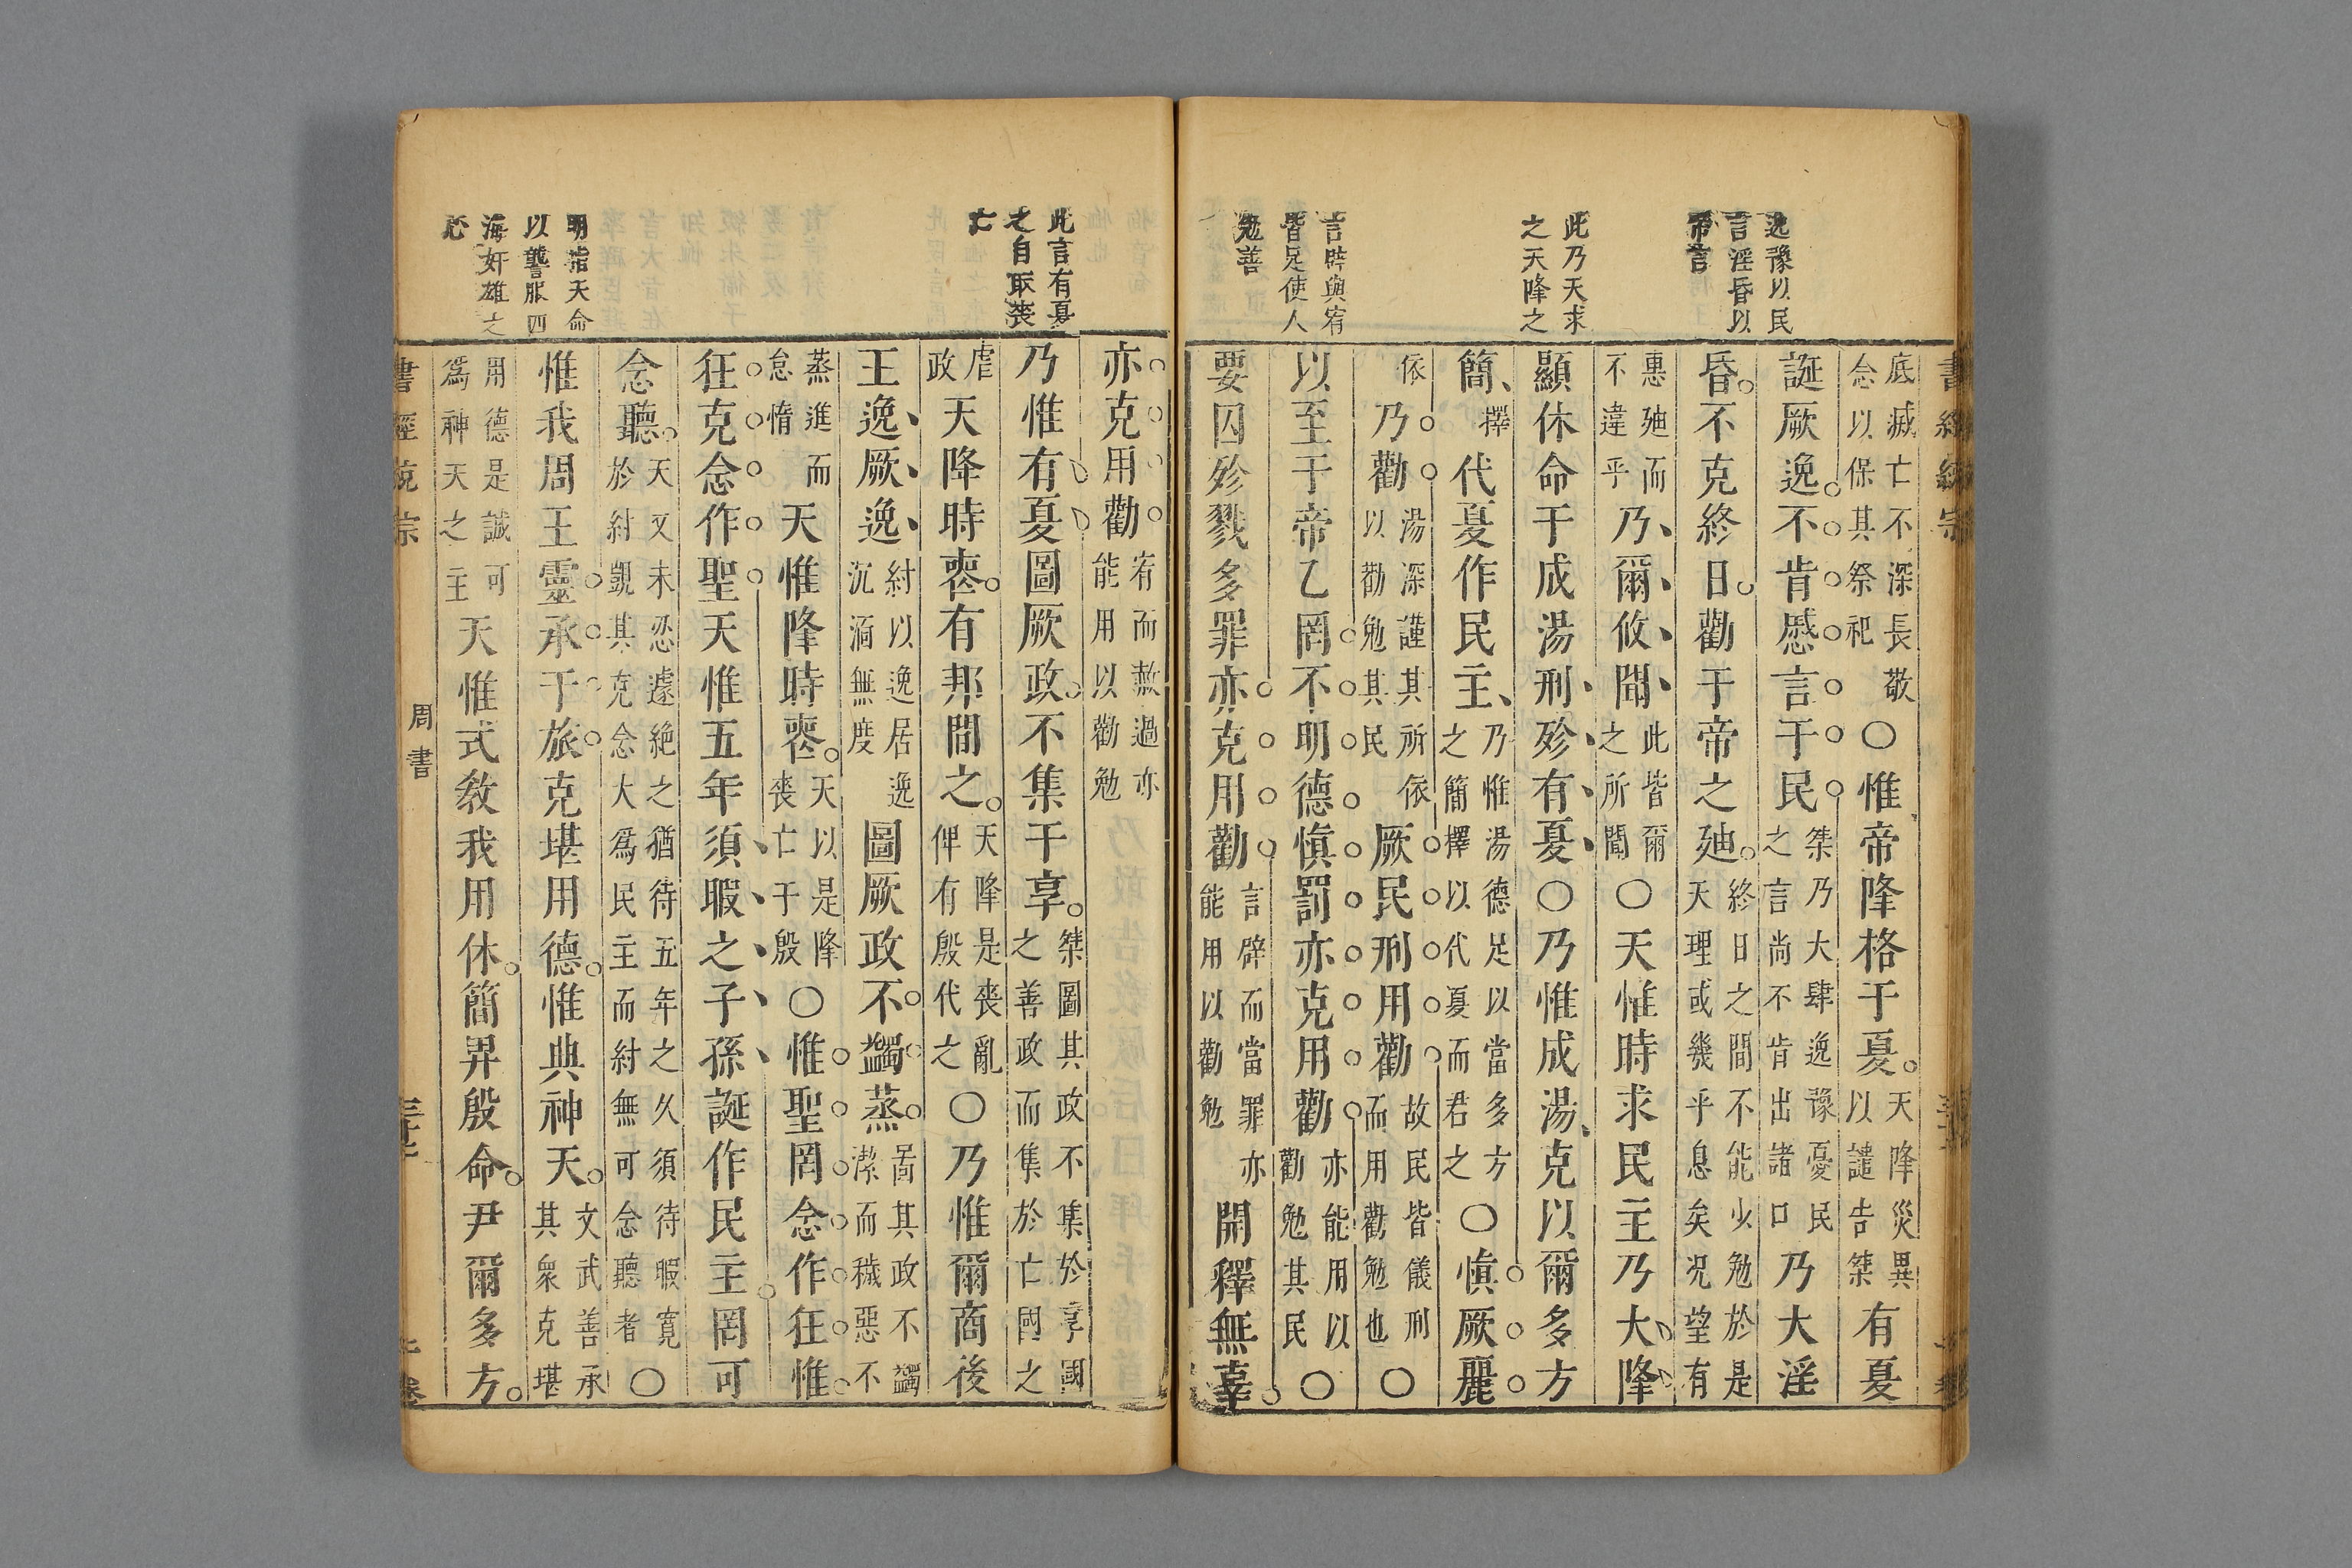 逸豫以民
言淫昏以
帝言
此乃天求
之天降之
言辟與宥
皆足使人
勉善
底滅亡不深長敬念以保其祭祀○惟帝降格于夏。天降災異以譴告桀有夏
誕厥逸。不肯慼言于民桀乃大肆逸豫憂民之言尚不肯出諸口乃大淫
昏。不克終日。勸于帝之廸。終日之間不能少勉於是天理或幾乎息矣况望有
惠廸而不違乎乃爾攸聞此皆爾之所聞○天惟時求民主乃大降
顯休命于成湯刑殄有夏○乃惟成湯克以爾多方
簡擇代夏作民主乃惟湯德足以當多方之簡擇以代夏而君之○愼厥麗
依乃勸湯深謹其所依以勸勉其民厥民刑用勸故民皆儀刑而用勸勉也○
以至于帝乙罔不明德愼罰亦克用勸亦能用以勸勉其民○
要囚殄戮多罪亦克用勸言辟而當罪亦能用以勸勉開釋無辜。
此言有夏
之自取喪
亡
明指天命
以讋服四
海奸雄之
心
亦克用勸宥而赦過亦能用以勸勉
乃惟有夏圖厥政。不集于享。桀圖其政不集於享國之善政而集於亡國之
虐政天降時喪。有邦間之。天降是喪亂俾有殷代之○乃惟爾商後
王逸厥逸紂以逸居逸沉湎無度圖厥政不蠲蒸啚其政不蠲潔而穢惡不
蒸進而怠惰天惟降時喪。天以是降喪亡于殷○惟聖罔念作狂惟
狂克念作聖天惟五年須暇之子孫誕作民主。罔可
念聽。天又未忍遽絶之猶待五年之久須待暇寛於紂覬其克念大爲民主而紂無可念聽者○
惟我周王靈承于旅克堪用德。惟典神天。文武善承其衆克堪
用德是誠可爲神天之主天惟式敎我用休。簡畀殷命。尹爾多方。
周書